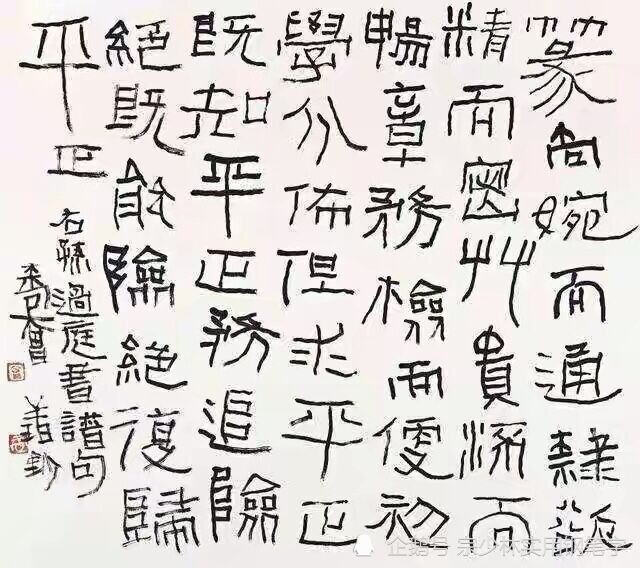 篆尚婉而通隸欲
精而密艸貴流而
暢章務檢而便初
學分佈但求平正
既知平正務追險
絕既能險絕復歸
平正
右孫過庭書譜句
企鹅号 宗少林实用钢笔字